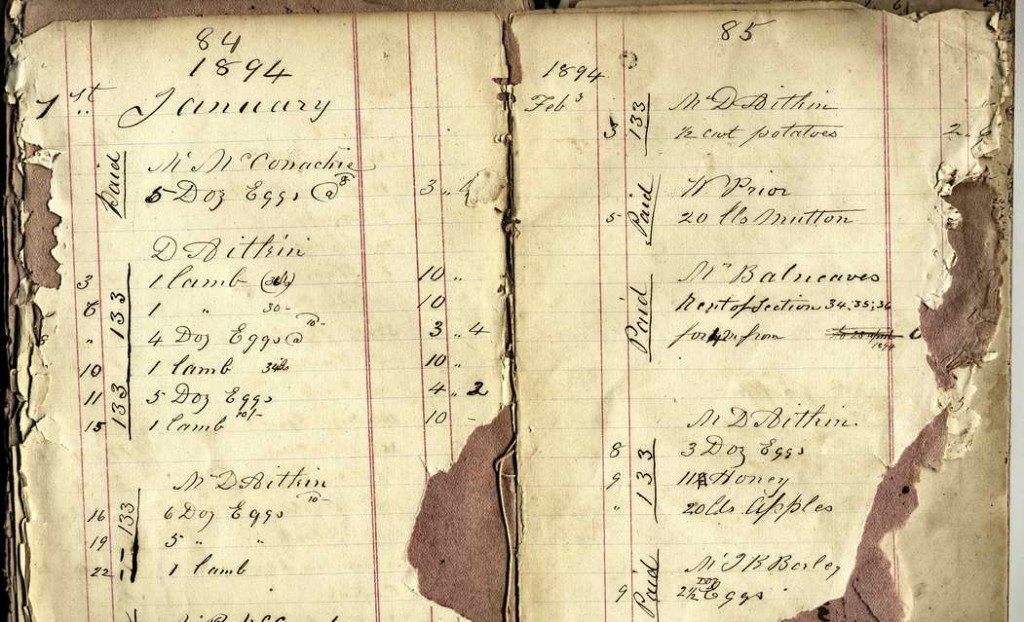 84
1894
1st January
Paid
Mr McConachie
5 Doz Eggs @ 8 3 " 4
D Aitkin
133
3 1 lamb 10 "
6 1 " 30 - 10
" 4 Doz Eggs @ 10 - 3 " 4
10 1 lamb 34lbs 10 "
133
11 5 Doz Eggs 4 " 2
15 1 lamb 10/- 10 -
Mr D Aitkin
133
16 6 Doz Eggs 10 -
19 5 " "
22 1 lamb
85
1894
Feb 3
133
Mr D Aitkin
5 ½ cwt potatoes 2
Paid
W Prior
5 20 lbs Mutton
Paid
Mr Balneaves
Rent of Section 34, 35, 36
from
Mr D Aitkin
133
8 3 Doz Eggs
9 11 Honey
" 20 lbs Apples
Paid
Mr J K Borley
9 2½ Doz Eggs